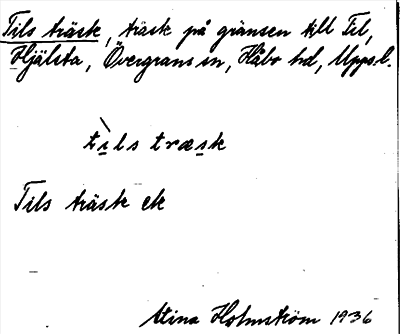 Tils träsk, träsk på gränsen till Til,
Hjälsta, Övergrans sn, Håbo hd, Upps.l.
tìls træsk
Tils träsk ek
Stina Holmström 1936